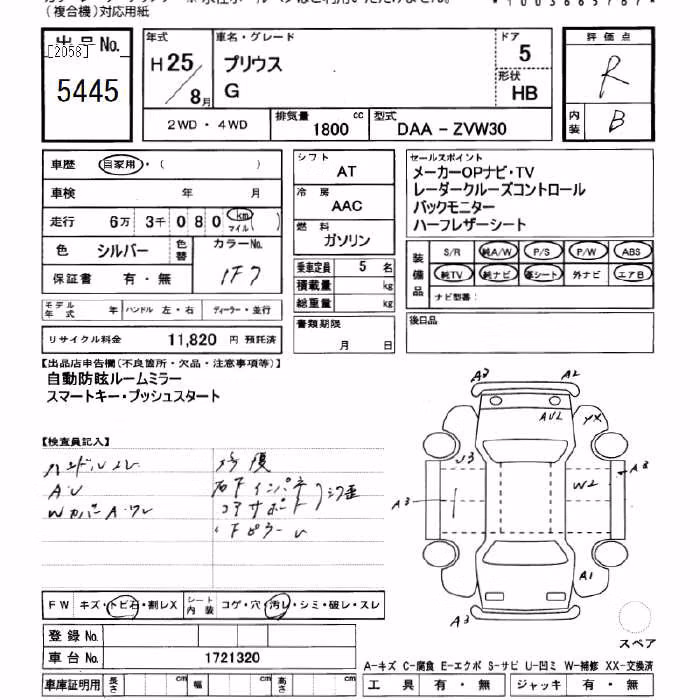 (複合機)対応用紙
出品No.
[2058]
5445
年式
H25/8月
車名・グレード
プリウス
G
ドア
5
形状
HB
評価点
R
内装
B
2WD・4WD
排気量
1800 cc
型式
DAA-ZVW30
車歴 自家用・( )
車検 年 月
走行 6万 3千 080 km マイル( )
色 シルバー 色替
カラーNo.
1F7
保証書 有・無
モデル年式 年 ハンドル 左・右 ディーラー・並行
リサイクル料金 11,820 円 預託済
シフト
AT
冷房
AAC
燃料
ガソリン
乗車定員 5 名
積載量 kg
総重量 kg
書類期限
月 日
セールスポイント
メーカーOPナビ・TV
レーダークルーズコントロール
バックモニター
ハーフレザーシート
装備品
S/R 純A/W P/S P/W ABS
純TV 純ナビ 革シート 外ナビ エアB
ナビ型番:
後日品
【出品店申告欄(不良箇所・欠品・注意事項等)】
自動防眩ルームミラー
スマートキー・プッシュスタート
【検査員記入】
ハンドルスレ
AU
Wカバー A・ワレ
修復
右Fインパネ
コアサポート
歪
FW キズ・トビ石・割レX シート内装 コゲ・穴・汚レ・シミ・破レ・スレ
登録No.
車台No. 1721320
車庫証明用 長さ cm 幅 cm 高さ cm
A3 A2
AU2 YX
U3 W2 A3
A3
A1
A3
スペア
A-キズ C-腐食 E-エクボ S-サビ U-凹ミ W-補修 XX-交換済
工具 有・無 ジャッキ 有・無